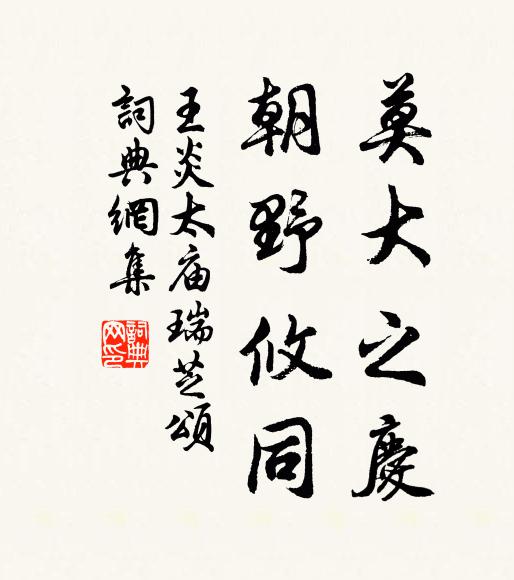 莫大之慶
朝野攸同
王炎太庙瑞芝頌
詞典網集
詞典网印